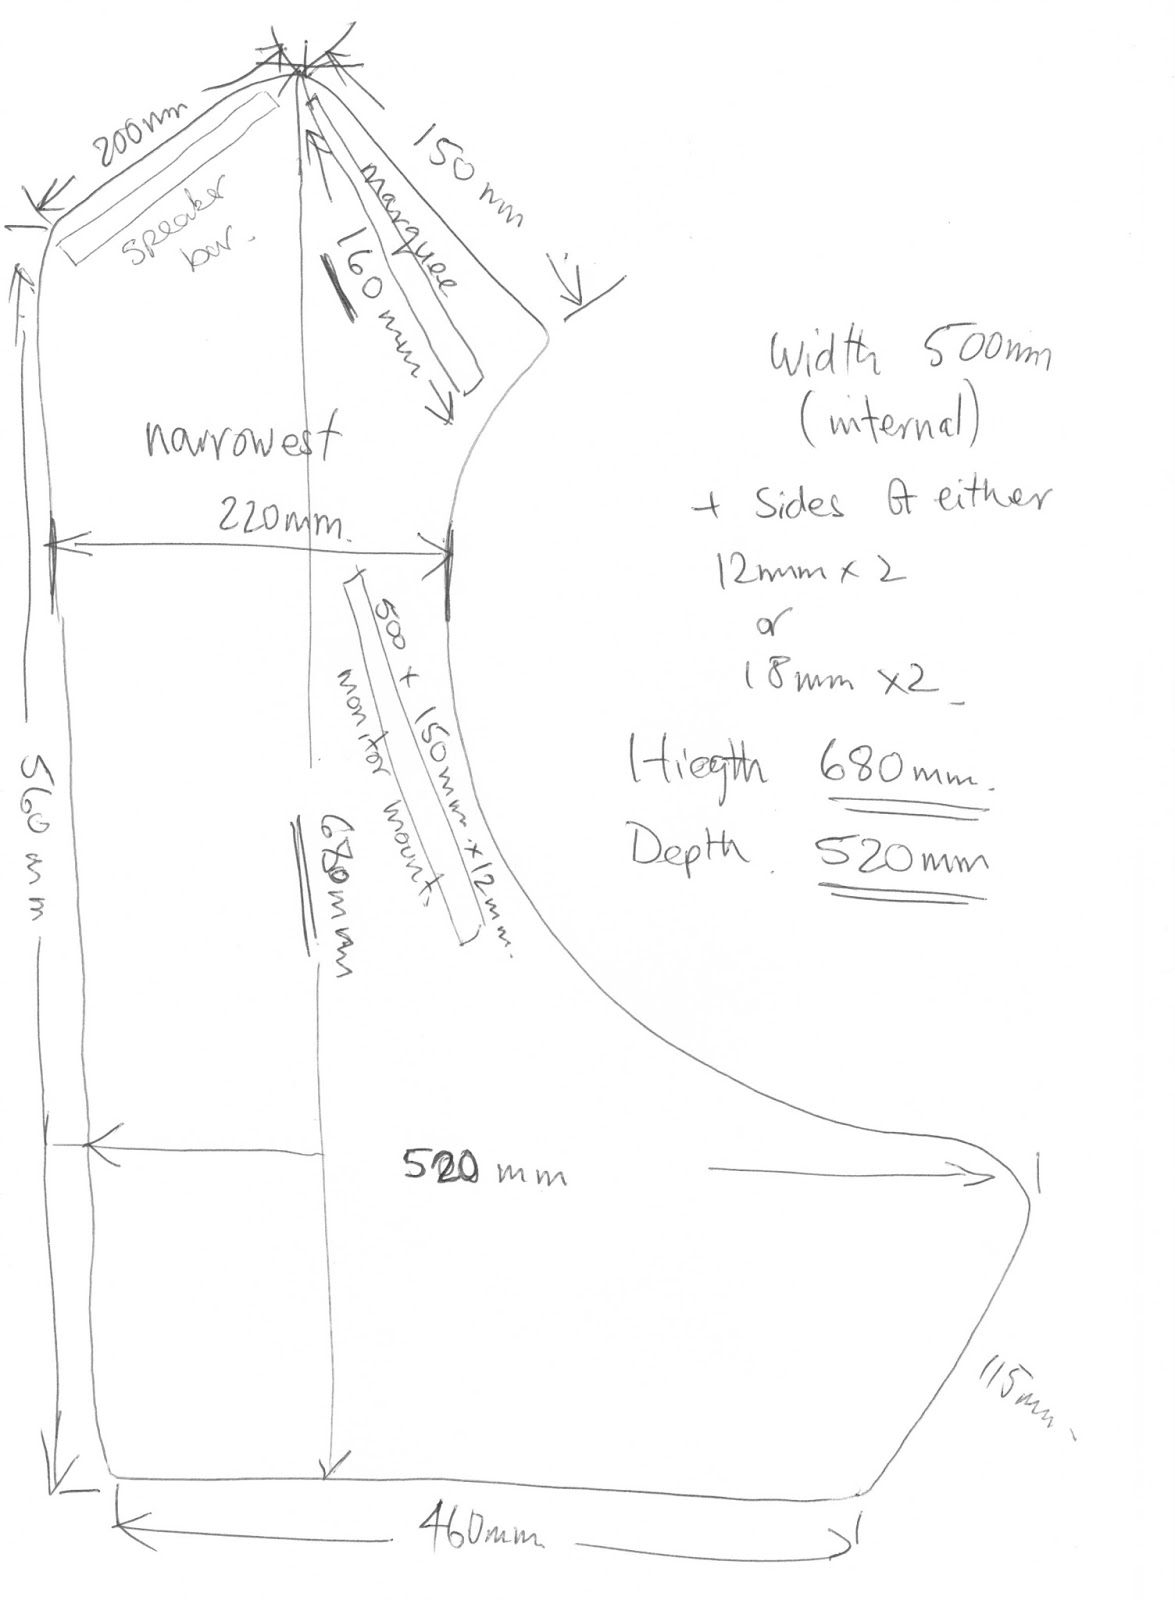 200mm
150mm
speaker
bar.
marquee
160mm
narrowest
220mm.
Width 500mm
(internal)
+ Sides @ either
12mm x 2
or
18mm x2
Hiegth 680mm.
Depth. 520mm
500 + 150mm x12mm.
monitor mount.
560mm
680mm
520mm
115mm.
460mm